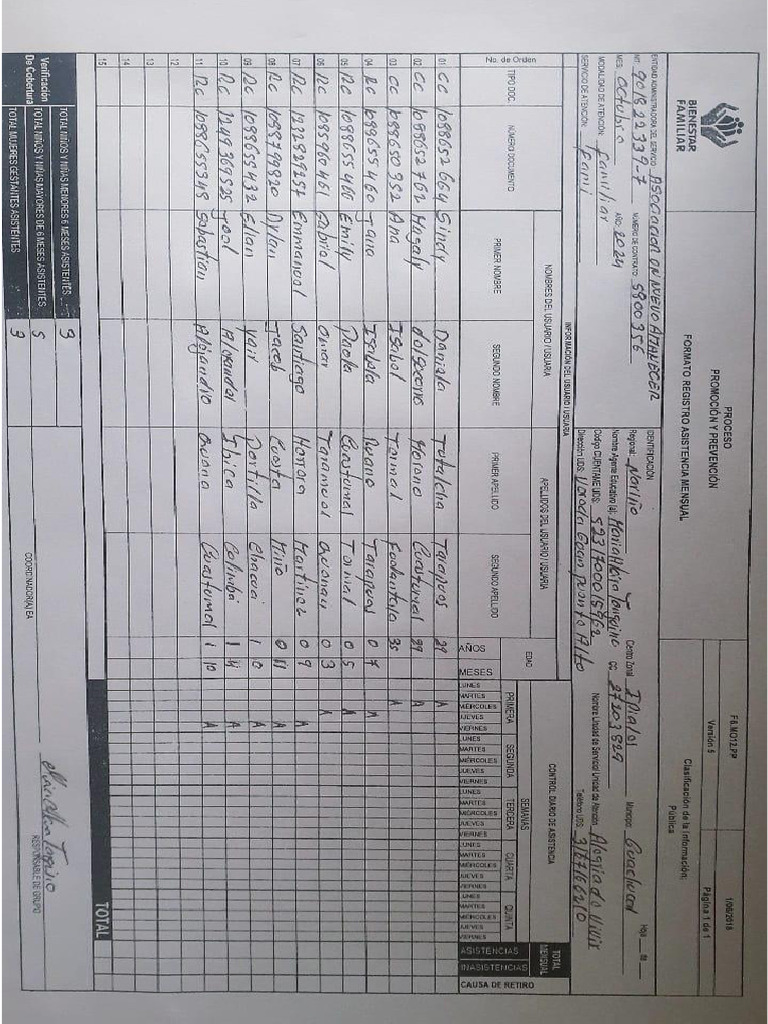 BIENESTAR FAMILIAR
PROCESO
PROMOCIÓN Y PREVENCIÓN
FORMATO REGISTRO ASISTENCIA MENSUAL
F6.MO12.PP
1/06/2018
Versión 5
Página 1 de 1
Clasificación de la Información: Pública
ENTIDAD ADMINISTRADORA DEL SERVICIO: ASOCIACION NUEVO AMANECER
NIT: 901822339-7 NÚMERO DE CONTRATO: 5200356
MES: octubre AÑO: 2024
MODALIDAD DE ATENCIÓN: familiar
SERVICIO DE ATENCIÓN: fami
IDENTIFICACIÓN
Regional: Nariño Centro Zonal Ipiales Municipio Guachucal Hoja de
Nombre Agente Educativo (a): CC 27203829 Nombre Unidad de Servicio/ Unidad de Atención: Alegria de Vivir
Código CUENTAME UDS: Teléfono UDS: 3167166210
Dirección UDS: Vereda Alto
INFORMACIÓN DEL USUARIO / USUARIA
CONTROL DIARIO DE ASISTENCIA
No. de Orden TIPO DOC. NÚMERO DOCUMENTO NOMBRES DEL USUARIO / USUARIA APELLIDOS DEL USUARIO / USUARIA EDAD SEMANAS TOTAL MENSUAL CAUSA DE RETIRO
PRIMER NOMBRE SEGUNDO NOMBRE PRIMER APELLIDO SEGUNDO APELLIDO AÑOS MESES PRIMERA SEGUNDA TERCERA CUARTA QUINTA ASISTENCIAS INASISTENCIAS
LUNES MARTES MIÉRCOLES JUEVES VIERNES LUNES MARTES MIÉRCOLES JUEVES VIERNES LUNES MARTES MIÉRCOLES JUEVES VIERNES LUNES MARTES MIÉRCOLES JUEVES VIERNES LUNES MARTES MIÉRCOLES JUEVES VIERNES
01 CC 1088652664 Sindy Daniela Tatalcha Tarapues 29 A
02 CC 1088652762 Magaly del socorro Moreno Cuastumal 29 A
03 CC 1088650392 Ana Isabel Tarmal 35 A
04 RC 1088655460 Isabela Puano Tarapues 0 7 A
05 RC 1088655466 Emily Paola Cuastumal Tarmal 0 5 A
06 RC 1085960461 Gabriel Omar Taramuel 0 3 A
07 RC 1232829257 Emmanuel Santiago Herrera Martinez 0 9 A
08 RC 1088799820 Dylan Jacob Cuesta Miño 0 11 A
09 RC 1088655432 Edian Yair Portilla 1 0 A
10 RC 1249369525 Yoel Alexander Colimba 1 4 A
11 RC 1088655348 Sebastian Alejandro Cuastumal 1 10 A
12
13
14
15
TOTAL
Verificación De Cobertura
TOTAL NIÑOS Y NIÑAS MENORES 6 MESES ASISTENTES 3
TOTAL NIÑOS Y NIÑAS MAYORES DE 6 MESES ASISTENTES 5
TOTAL MUJERES GESTANTES ASISTENTES 3
COORDINADOR(A) EA
RESPONSABLE DE GRUPO